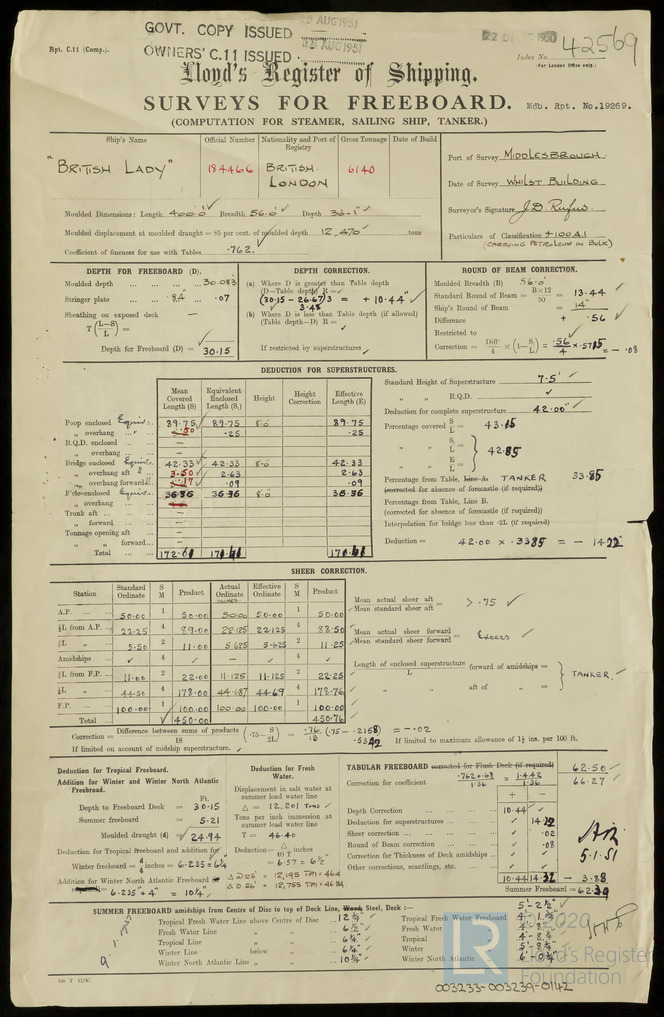 GOVT. COPY ISSUED 15 AUG 1951
OWNERS' C.11 ISSUED 15 AUG 1951
22 DEC 1950
Rpt. C.11 (Comp.).
Index No. 42569
(For London Office only.)
Lloyd's Register of Shipping.
SURVEYS FOR FREEBOARD. Mdb. Rpt. No.19269.
(COMPUTATION FOR STEAMER, SAILING SHIP, TANKER.)
Ship's Name Official Number Nationality and Port of Registry Gross Tonnage Date of Build
"BRITISH LADY" 184466 BRITISH. LONDON 6140
Port of Survey MIDDLESBROUGH
Date of Survey WHILST BUILDING
Surveyor's Signature J.D. Rufus.
Particulars of Classification +100A1
(CARRYING PETROLEUM IN BULK)
Moulded Dimensions: Length 400.0 Breadth 56.0 Depth 36-1"
Moulded displacement at moulded draught = 85 per cent. of moulded depth 12,470 tons
Coefficient of fineness for use with Tables .762
DEPTH FOR FREEBOARD (D).
Moulded depth 30.083
Stringer plate .84 .07
Sheathing on exposed deck —
T (L-S / L) =
Depth for Freeboard (D) = 30.15
DEPTH CORRECTION.
(a) Where D is greater than Table depth
(D—Table depth) R =
(30.15 - 26.67) 3 = + 10.44"
3.48
(b) Where D is less than Table depth (if allowed)
(Table depth—D) R =
If restricted by superstructures
ROUND OF BEAM CORRECTION.
Moulded Breadth (B) 56.0
Standard Round of Beam = B×12 / 50 = 13.44
Ship's Round of Beam = 14"
Difference + .56
Restricted to
Correction = Diff / 4 × (1 - S₁ / L) = .56 / 4 × .5715 = - .08
DEDUCTION FOR SUPERSTRUCTURES.
Mean Covered Length (S) Equivalent Enclosed Length (S₁) Height Height Correction Effective Length (E)
Poop enclosed Equiv. 89.75 89.75 8.0 89.75
„ overhang .25 .25
R.Q.D. enclosed —
„ overhang —
Bridge enclosed 42.33 42.33 8-0 42.33
„ overhang aft 3.50 2.63 2.63
„ overhang forward .17 .09 .09
F'cle enclosed Equiv. 36.36 36.36 8.0 36.36
„ overhang
Trunk aft —
„ forward —
Tonnage opening aft —
„ „ forward —
Total 172.61 171.41 171.41
Standard Height of Superstructure 7.5'
„ „ R.Q.D.
Deduction for complete superstructure 42.00"
Percentage covered S / L = 43.15
„ „ S₁ / L =
„ „ E / L = 42.85
Percentage from Table, Line A. TANKER 33.85
(corrected for absence of forecastle (if required))
Percentage from Table, Line B.
(corrected for absence of forecastle (if required))
Interpolation for bridge less than ·2L (if required)
Deduction = 42.00 × .3385 = - 14.22"
SHEER CORRECTION.
Station Standard Ordinate S M Product Actual Ordinate INCHES Effective Ordinate S M Product
A.P. 50.00 1 50.00 50.00 50.00 1 50.00
⅙L from A.P. 22.25 4 89.00 22.125 22.125 4 88.50
⅓L „ 5.50 2 11.00 5.625 5.625 2 11.25
Amidships 4 — 4
⅓L from F.P. 11.00 2 22.00 11.125 11.125 2 22.25
⅙L „ 44.50 4 178.00 44.687 44.69 4 178.76
F.P. 100.00 1 100.00 100.00 100.00 1 100.00
Total 450.00 450.76
Mean actual sheer aft / Mean standard sheer aft = > .75
Mean actual sheer forward / Mean standard sheer forward = Excess
Length of enclosed superstructure / L forward of amidships =
„ „ aft of „ =
TANKER.
Correction = Difference between sums of products / 18 (·75 - S / 2L) = .76 / 18 (.75 - .2158) = - .02
.5342
If limited on account of midship superstructure.
If limited to maximum allowance of 1½ ins. per 100 ft.
Deduction for Tropical Freeboard.
Addition for Winter and Winter North Atlantic Freeboard.
Ft.
Depth to Freeboard Deck = 30.15
Summer freeboard = 5.21
Moulded draught (d) = 24.94
Deduction for Tropical freeboard and addition for
Winter freeboard = d / 4 inches = 6.235 = 6¼
Addition for Winter North Atlantic Freeboard
6.235 + 4" = 10¼"
Deduction for Fresh Water.
Displacement in salt water at summer load water line
Δ = 12,201 TONS
Tons per inch immersion at summer load water line
T = 46.40
Deduction = Δ / 40 T inches
= 6.57 = 6½"
Δ @ 25' = 12,195 TPI = 46.4
TABULAR FREEBOARD corrected for Flush Deck (if required) 62.50
Correction for coefficient .762 + .68 / 1.36 = 1.442 / 1.36 66.27
+ -
Depth Correction 10.44
Deduction for superstructures 14.22
Sheer correction .02
Round of Beam correction .08
Correction for Thickness of Deck amidships
Other corrections, scantlings, etc.
10.44 14.32 - 3.88
Summer Freeboard = 62.39
5.1.51
SUMMER FREEBOARD amidships from Centre of Disc to top of Deck Line, Wood, Steel, Deck :— 5'- 2½"
Tropical Fresh Water Line above Centre of Disc 12¾"
Fresh Water Line „ „ 6½"
Tropical Line „ „ 6¼"
Winter Line below „ 6¼"
Winter North Atlantic Line „ „ 10¼"
Tropical Fresh Water Freeboard
Fresh Water „
Tropical „
Winter „
Winter North Atlantic „
LR
© 2020
Lloyd's Register
Foundation
003233-003239-0142